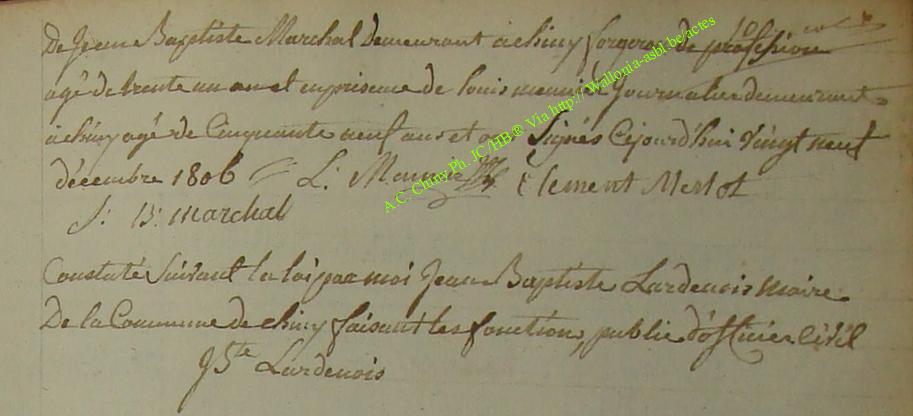 De Jean Baptiste Marchal demeurant a chiny forgeron de profession
agé de trente un an et en presence de Louis Meunier Journalier demeurant
a chiny agé de Cinquante neuf ans et on Signés Cejourd'hui vingt neuf
décembre 1806 L: Meunier Clement Merlot
J: B: marchal
Constaté Suivant la loi par moi Jean Baptiste Lardenois maire
De la Commune de chiny faisant les fonction public d'officier Civil
JBte Lardenois
A.C. Chiny Ph. JC/HB@ Via http://wallonia-asbl.be/actes